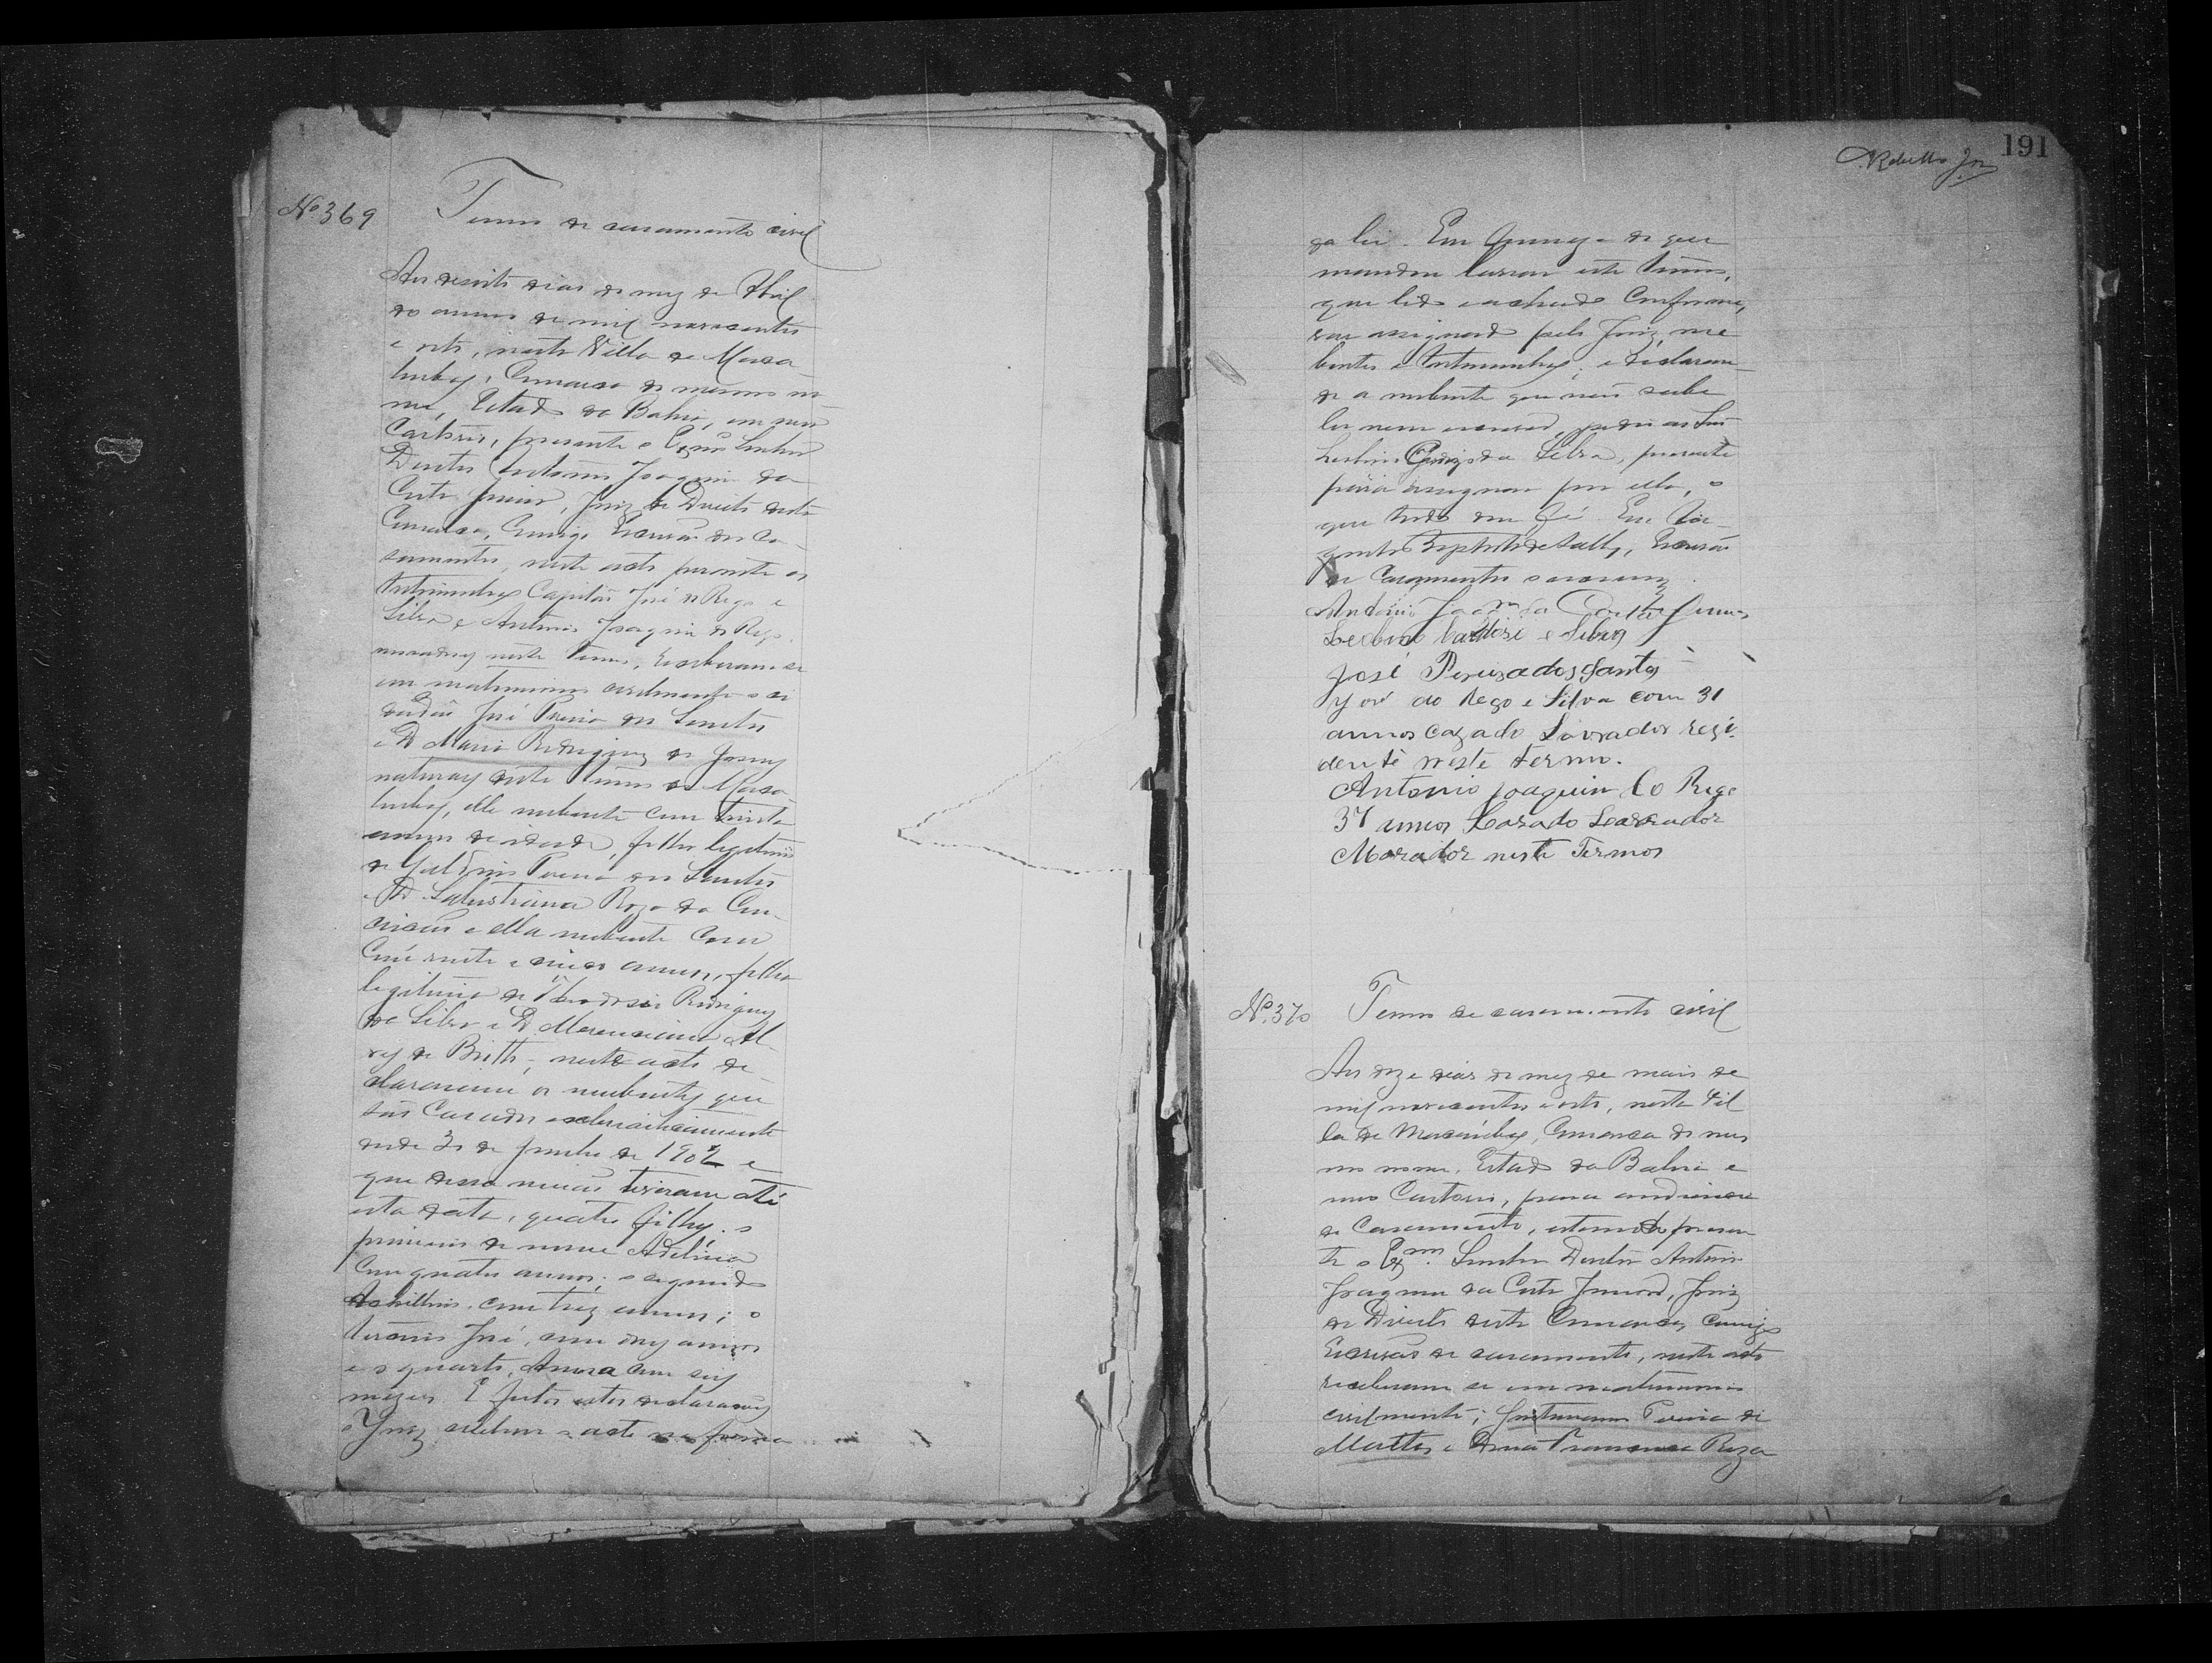 Nº 369
Termo de casamento civil
Aos desoito dias do mez de Abril
do anno de mil novecentos
e oito, nesta Villa de Maca-
hubas, Comarca do mesmo no
me, Estado da Bahia, em meu
Cartorio, presente o Exmo Senhor
Doutor Antonio Joaquim da
Costa Junior, Juiz de Direito desta
Comarca, Comigo Escrivão dos Ca-
samentos, neste acto presente as
testimunhas Capitão José do Rego e
Silva e Antonio Joaquim do Rego
moradores neste Termo, receberam-se
em matrimonio civilmente o ci
dadão José Pereira dos Santos
e D. Maria Rodrigues de Jesus
naturaes deste Termo de Maca-
hubas, elle nubente com trinta
annos de idade, filho legitimo
de Pereira dos Santos
e D. Salustriana Roza da Con-
ceição e ella nubente com
vinte e cinco annos, filha
legitima de Theodosio Rodrigues
da Silva e D. Al-
ves de Britto, neste acto de
clararam os nubentes que
são Casados ecclesiasticamente
desde 30 de Junho de 1902 e
que dessa união tiveram até
esta data, quatro filhos: o
primeiro de nome Adelina
Com quatro annos; o segundo
com trez annos; o
terceiro José, com dous annos
e o quarto, Anna com seis
mezes. E feitas estas declarações
o Juiz celebrou o acto na forma
191
da lei. Em firmeza do que
mandou lavrar este termo,
que lido e achado Conforme,
vae assignado pelo Juiz, nu-
bentes e testimunhas; e declaran-
do a nubente que não sabe
ler nem escrever, pediu ao
da Silva, presente
para assignar por ella, o
que tudo dou fé. Eu
Baptista de Escrivão
de Casamentos o escrevy.
Antonio Joaqm da Costa Junior
e Silva
José Pereira dos Santos
José do Rego e Silva com 31
annos cazado Lavrador rezi-
dente neste termo.
Antonio Joaquim do Rego
37 annos Cazado Lavrador
Morador neste Termos
Nº 370
Termo de casamento civil
Aos doze dias do mez de maio de
mil novecentos e oito, nesta Vil
la de Macahubas, Comarca do mes
mo nome, Estado da Bahia e
meu Cartorio, para audiencia
de Casamento, estando presen
te o Exmo. Senhor Doutor Antonio
Joaquim da Costa Junior, Juiz
de Direito desta Comarca, Comigo
Escrivão de casamento, neste acto
receberam se em matrimonio
civilmente; Pereira de
Mattos e Dona Francisca Roza